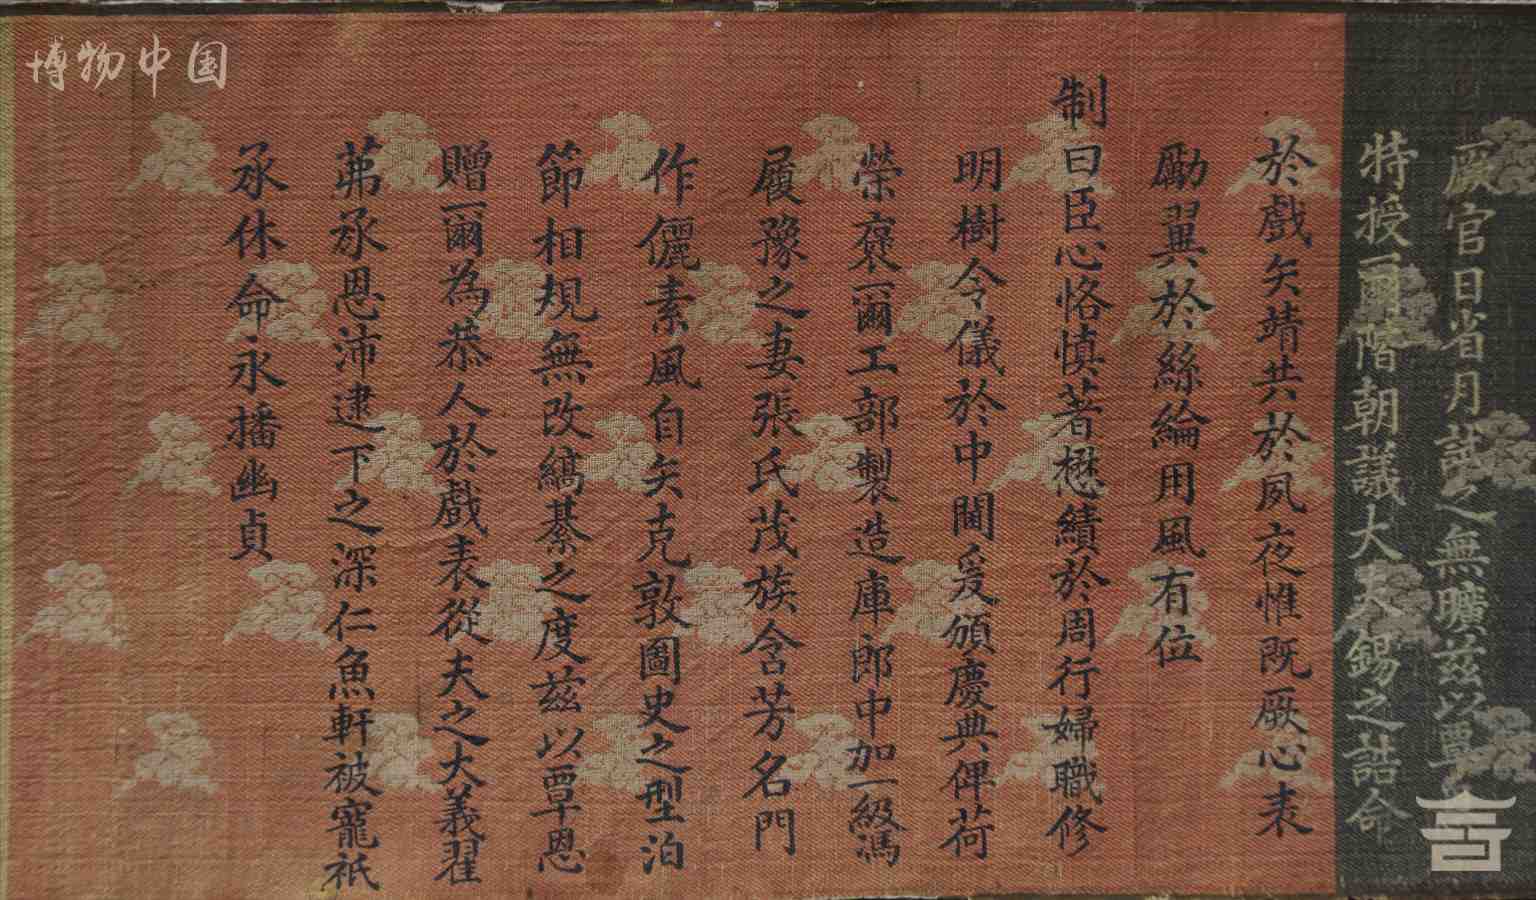 博物中国
厥官日省月試之無曠茲以覃恩
特授爾階朝議大夫錫之誥命
於戲矢靖共於夙夜惟既厥心表
勵翼於絲綸用風有位
制曰臣心恪慎著懋績於周行婦職修
明樹令儀於中閫爰頒慶典俾荷
榮褒爾工部製造庫郎中加一級馮
履豫之妻張氏茂族含芳名門
作儷素風自矢克敦圖史之型洎
節相規無改縞綦之度茲以覃恩
贈爾為恭人於戲表從夫之大義翟
茀承恩沛逮下之深仁魚軒被寵祇
承休命永播幽貞